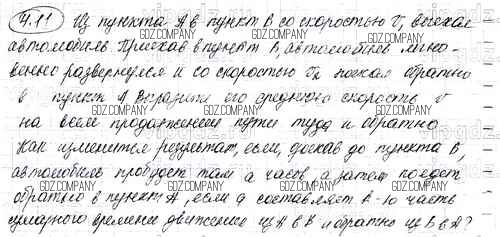 4.11 Из пункта A в пункт B со скоростью v₁ выехал
автомобиль. Приехав в пункт B, автомобиль мгно-
венно развернулся и со скоростью v₂ поехал обратно
в пункт A. Выразить его среднюю скорость v
на всем продолжении пути туда и обратно.
Как изменится результат, если, доехав до пункта B,
автомобиль пробудет там a часов, а затем поедет
обратно в пункт A, если a составляет k-ю часть
суммарного времени движения из A в B и обратно из B в A?
GDZ.COMPANY